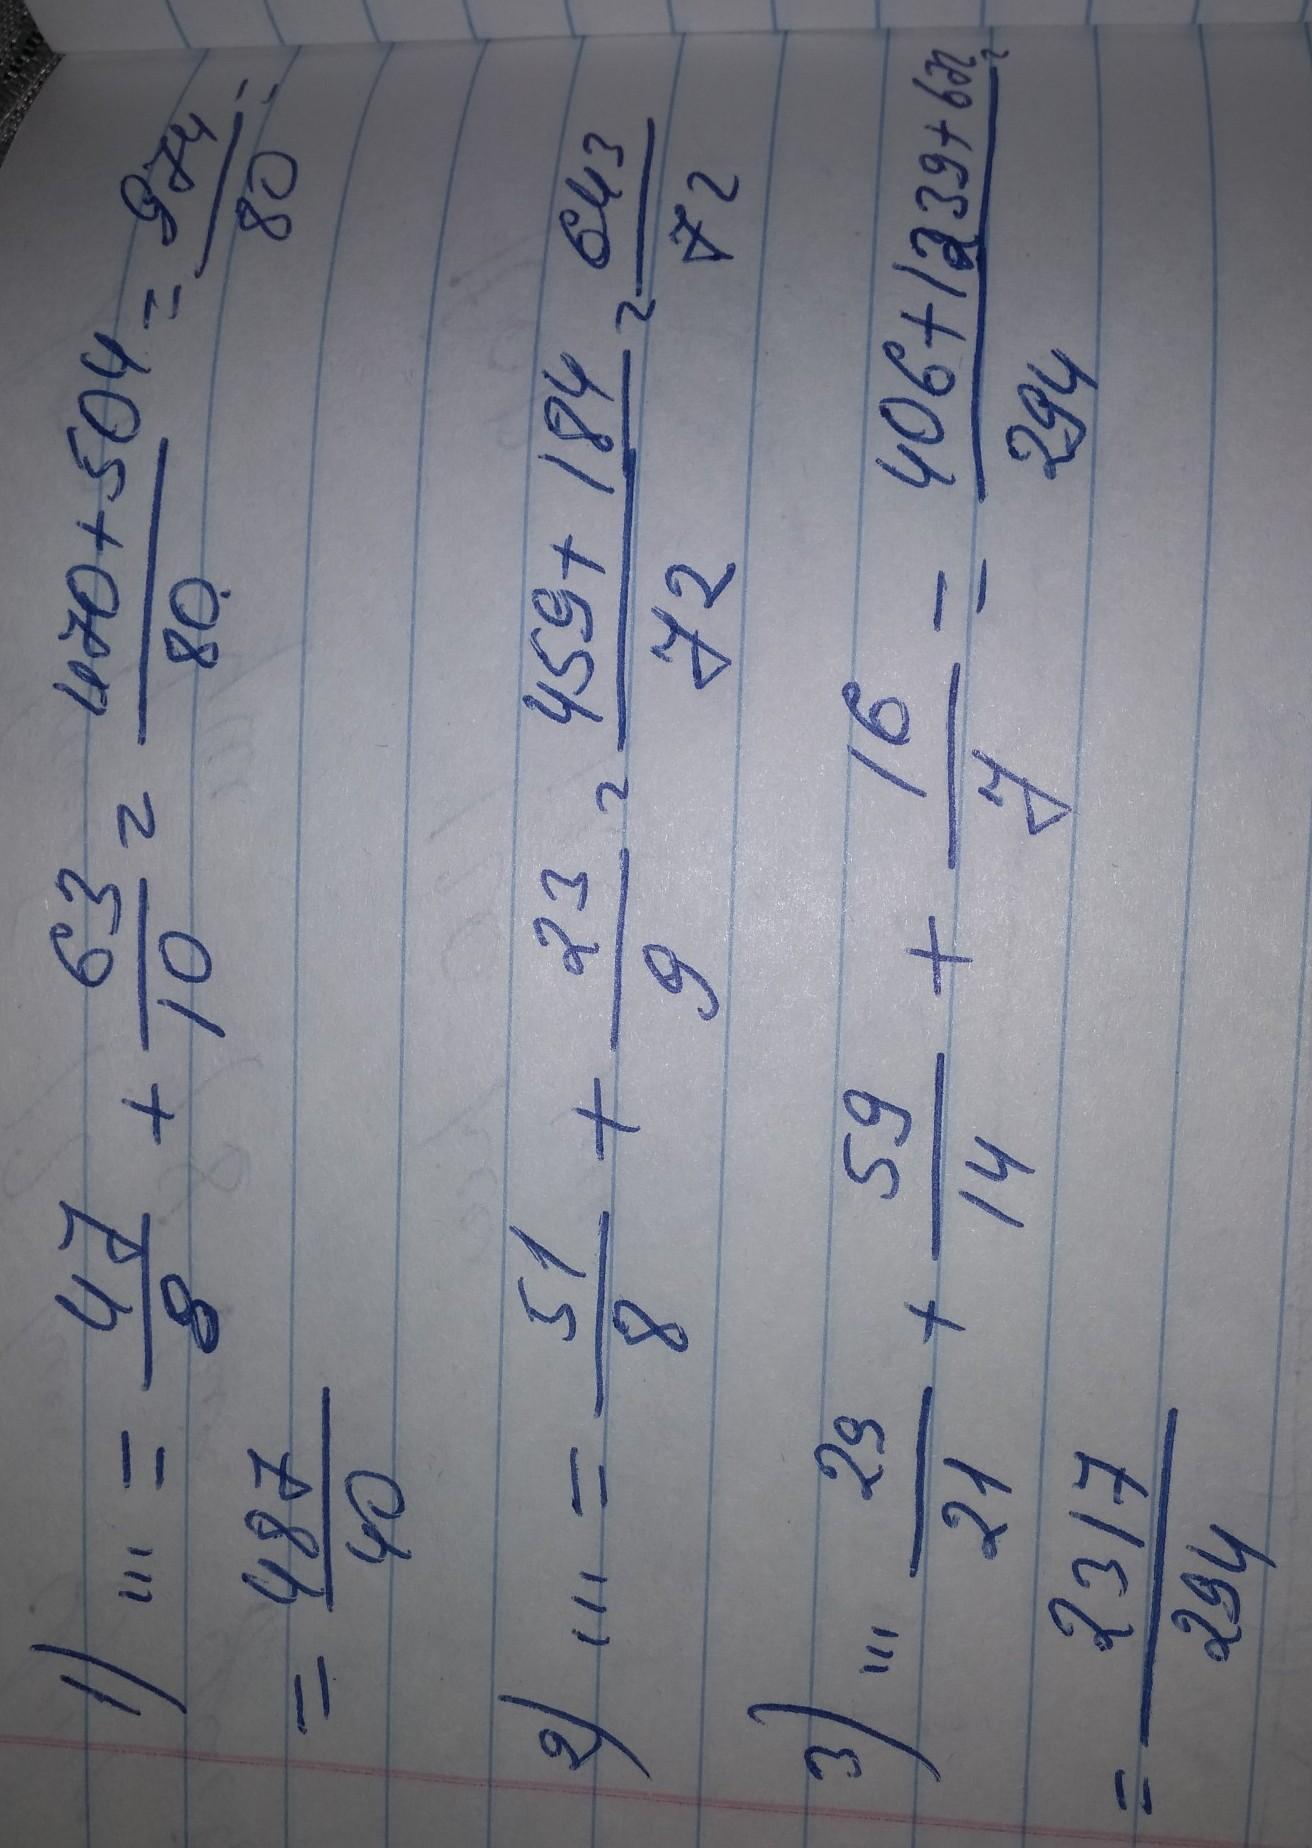 1) ... = 47/8 + 63/10 = 470+504/80 = 974/80 =
= 487/40
2) ... = 51/8 + 23/9 = 459+184/72 = 643/72
3) ... 29/21 + 59/14 + 16/7 = 406+1239+672/294 =
= 2317/294